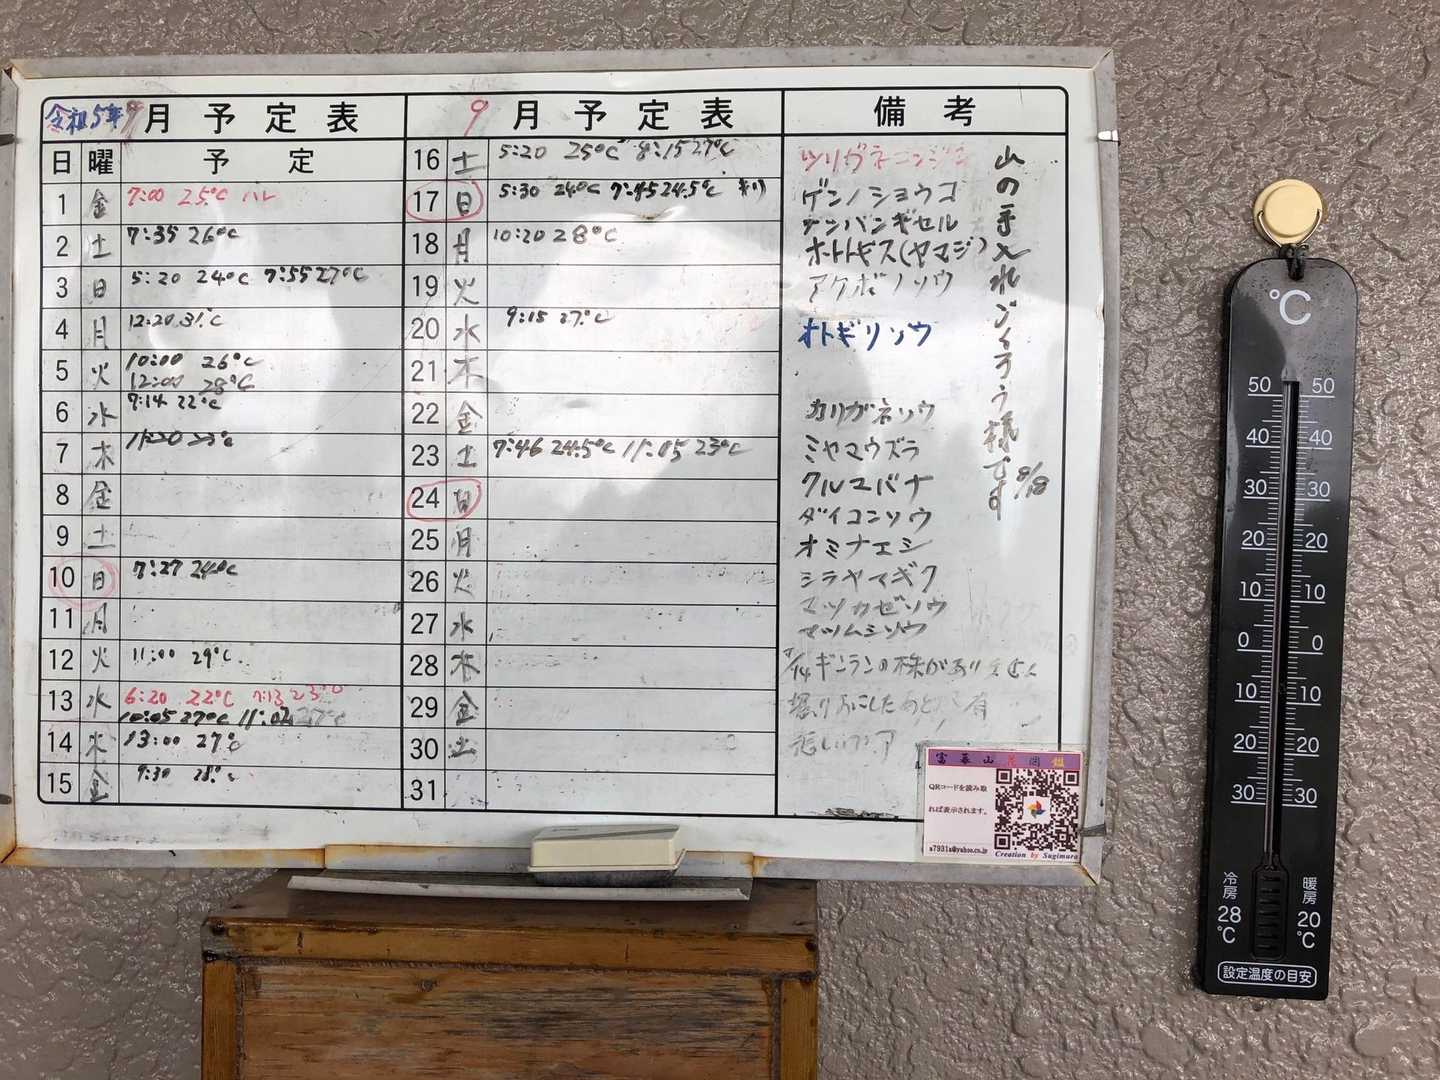 令和5年9月予定表
日 曜 予定
1 金 7:00 25℃ ハレ
2 土 7:35 26℃
3 日 5:20 24℃ 7:55 27℃
4 月 12:20 31℃
5 火 10:00 26℃
12:00 28℃
6 水 7:14 22℃
7 木 11:20 23℃
8 金
9 土
10 日 7:27 24℃
11 月
12 火 11:00 29℃
13 水 6:20 22℃ 7:13 23℃
10:05 27℃ 11:02 27℃
14 木 13:00 27℃
15 金 9:30 28℃
9月予定表
16 土 5:20 25℃ 8:15 27℃
17 日 5:30 24℃ 7:45 24.5℃ キリ
18 月 10:20 28℃
19 火
20 水 9:15 27℃
21 木
22 金
23 土 7:46 24.5℃ 11:05 23℃
24 日
25 月
26 火
27 水
28 木
29 金
30 土
31
備考
ツリガネニンジン
ゲンノショウコ
ナンバンギセル
ホトトギス(ヤマジ)
アケボノソウ
オトギリソウ
カリガネソウ
ミヤマウズラ
クルマバナ
ダイコンソウ
オミナエシ
シラヤマギク
マツカゼソウ
マツムシソウ
ギンランの株がありました
山の手入れごくろう様です
富幕山花図鑑
QRコードを読み取
れば表示されます。
a7931s@yahoo.co.jp
Creation by Sugimura
℃
50 50
40 40
30 30
20 20
10 10
0 0
10 10
20 20
30 30
冷房 28℃
暖房 20℃
設定温度の目安